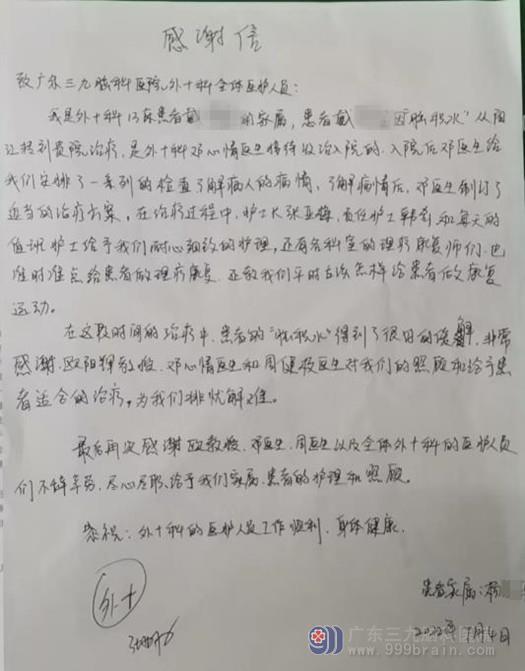 感谢信
致广东三九脑科医院外十科全体医护人员:
我是外十科13床患者戴 的家属,患者戴 因"脑积水"从阳
江转到贵院治疗,是外十科邓心情医生接待收治入院的.入院后邓医生给
我们安排了一系列的检查了解病人的病情,了解病情后,邓医生制订了
适当的治疗方案,在治疗过程中,护士长张亚梅,责任护士韩 和每天的
值班护士给予我们耐心细致的护理,还有各科室的理疗康复师们,也
准时准点给患者做理疗康复,还教我们平时应该怎样给患者做康复
运动。
在这段时间的治疗中,患者的"脑积水"得到了很好的缓解,非常
感谢,欧阳辉教授,邓心情医生和周健 医生对我们的照顾和给予患
者适合的治疗,为我们排忧解难。
最后再次感谢欧教授、邓医生、周医生以及全体外十科的医护人员
们不辞辛劳,尽心尽职,给予我们家属、患者的护理和照顾。
恭祝:外十科的医护人员工作顺利,身体健康.
外十
患者家属:杨
2022年 月4日
广东三九脑科医院
www.999brain.com